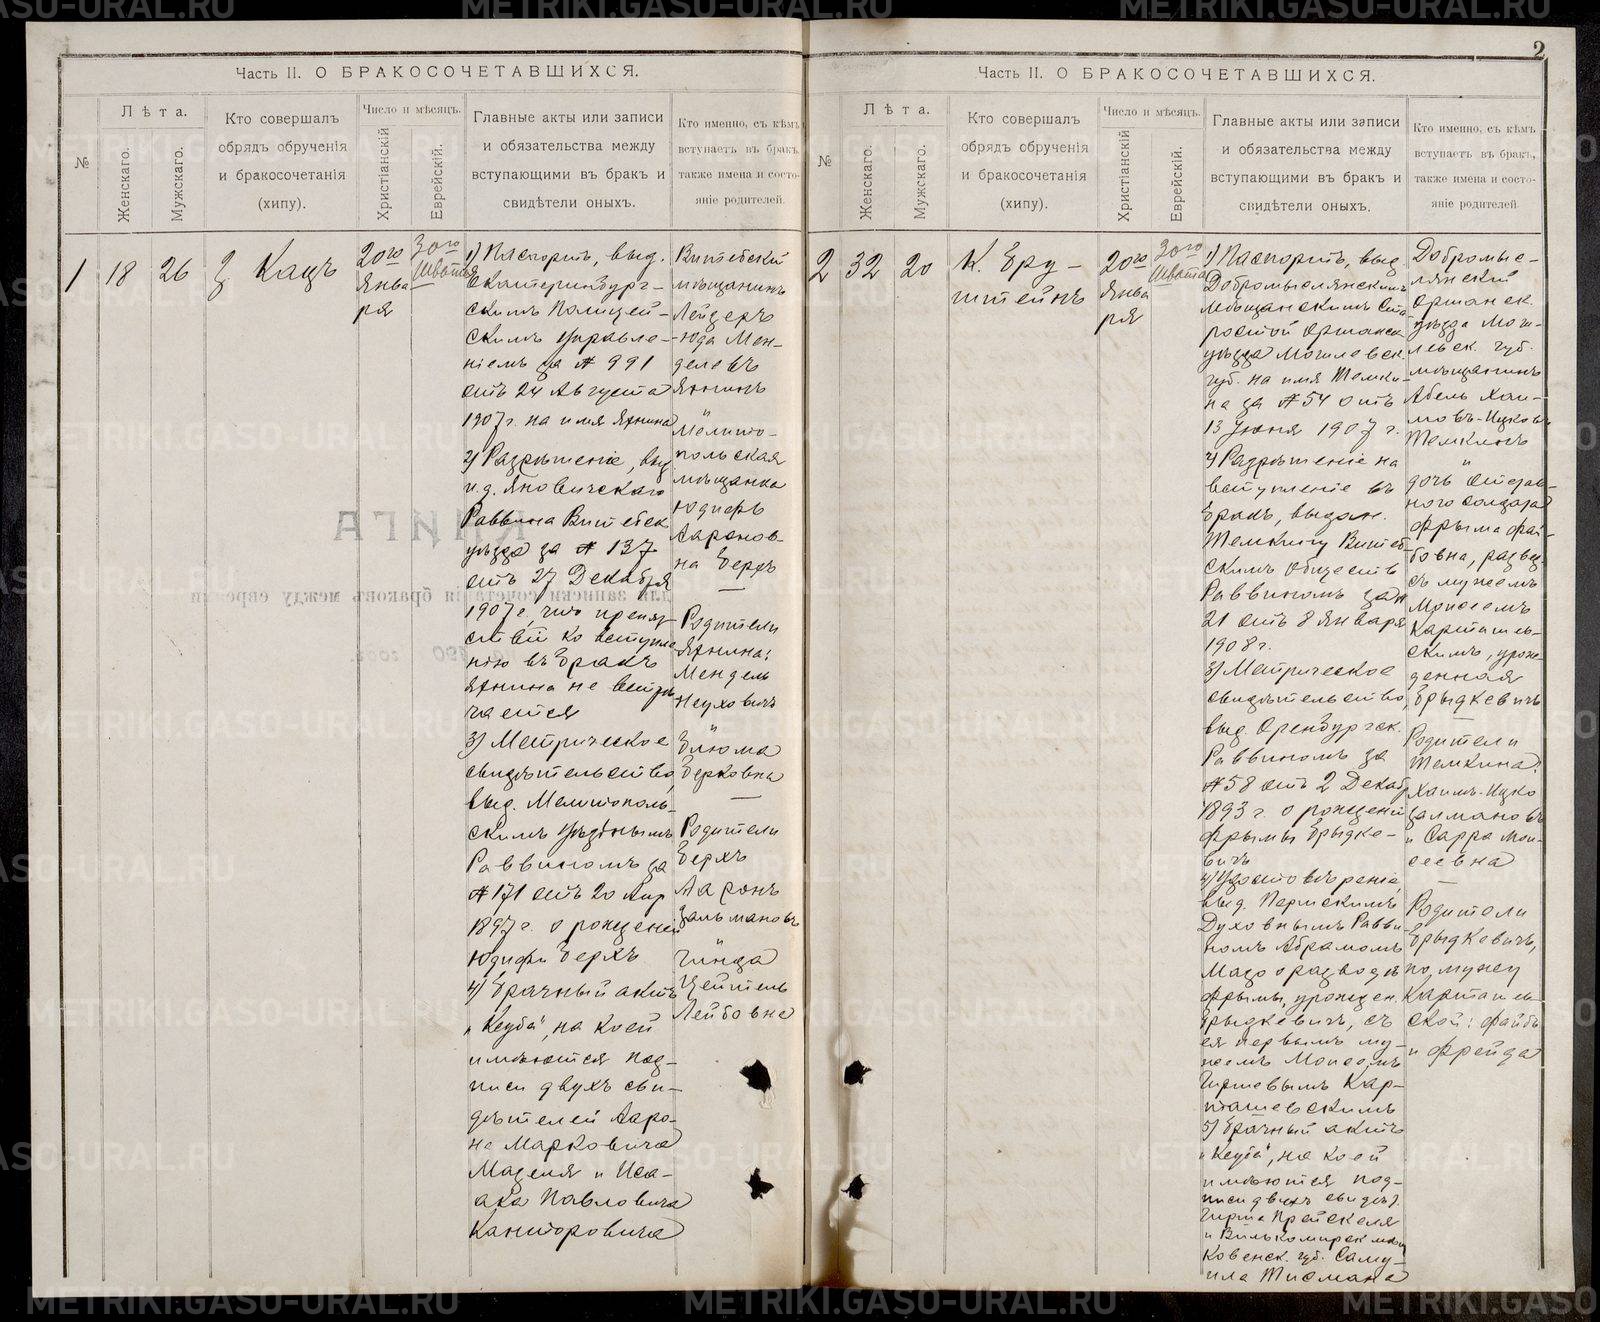 2
Часть II. О БРАКОСОЧЕТАВШИХСЯ.
№
Лѣта.
Женскаго.
Мужскаго.
Кто совершалъ
обрядъ обрученія
и бракосочетанія
(хипу).
Число и мѣсяцъ.
Христіанскій
Еврейскій.
Главные акты или записи
и обязательства между
вступающими въ бракъ и
свидѣтели оныхъ.
Кто именно, съ кѣмъ
вступаетъ въ бракъ,
также имена и состо-
яніе родителей.
1
18
26
Кацъ
20го
Янва
ря
30го
Швата
1) Паспортъ, выд.
Екатеринбург-
скимъ Полицей-
скимъ Управле-
ніемъ за № 991
отъ 24 Августа
1907 г. на имя Яхнина
2) Разрѣшеніе, выд
и.д. Яновичскаго
Раввина Витебск
уѣзда за № 137
отъ 27 Декабря
1907 г., что препят
ствій ко вступле
нію въ бракъ
Яхнина не встрѣ
чается
3) Метрическое
свидѣтельство,
выд. Мелитополь-
скимъ Уѣзднымъ
Раввиномъ за
№ 171 отъ 20 Апр
1897 г. о рожденіи
Юдифи Берхъ
4) Брачный актъ
„Кеуба", на коей
имѣются под-
писи двухъ сви-
дѣтелей Ааро-
на Марковича
Мазеля и Иса-
ака Павловича
Канторовича
Витебскій
мѣщанинъ
Лейзеръ
-Юда Мен-
делевъ
Яхнинъ
"
Мелито-
польская
мѣщанка
Юдифь
Ааронов-
на Берхъ
Родители
Яхнина:
Мендель
Неуховичъ
"
Блюма
Берковна
Родители
Берхъ
Ааронъ
Залмановъ
"
Гинда
Цейтель
Лейбовна
Часть II. О БРАКОСОЧЕТАВШИХСЯ.
№
Лѣта.
Женскаго.
Мужскаго.
Кто совершалъ
обрядъ обрученія
и бракосочетанія
(хипу).
Число и мѣсяцъ.
Христіанскій
Еврейскій.
Главные акты или записи
и обязательства между
вступающими въ бракъ и
свидѣтели оныхъ.
Кто именно, съ кѣмъ
вступаетъ въ бракъ,
также имена и состо-
яніе родителей
2
32
20
К. Бру-
штейнъ
20го
Янва
ря
30го
Швата
1) Паспортъ, выд
Добромыслянскимъ
Мѣщанскимъ Ста
ростой Оршанск
уѣзда Могилевск.
губ. на имя Темки-
на за № 54 отъ
13 Іюня 1907 г.
2) Разрѣшеніе на
вступленіе въ
бракъ, выдан.
Темкину Витеб-
скимъ Обществ
Раввиномъ за №
21 отъ 8 Января
1908 г.
3) Метрическое
свидѣтельство,
выд Оренбургск.
Раввиномъ за
№ 58 отъ 2 Декаб
1893 г. о рожденіи
Фрымы Брыдке-
вичъ
4) Удостовѣреніе,
выд. Пермскимъ
Духовнымъ Равви-
номъ Абрамомъ
Мазо о разводѣ
Фрымы, урожден.
Брыдкевичъ, съ
ея первымъ му-
жемъ Моисеемъ
Гиршевымъ Кар-
ташевскимъ
5) Брачный актъ
„Кеуба", на коей
имѣются под-
писи двухъ свидѣт.
Гирша Прейскеля
и Вилькомирск мѣщ
Ковенск. губ. Саму-
ила Тисмана
Добромыс-
лянскій
Оршанск.
уѣзда Моги-
левск. губ.
мѣщанинъ
Абель Хаи-
мовъ-Ицковъ
Темкинъ
"
дочь отстав-
ного солдата
Фрыма Фай-
бовна, развед.
съ мужемъ
Моисеемъ
Карташев-
скимъ, урож-
денная
Брыдкевичъ
Родители
Темкина:
Хаимъ-Ицко
Залмановъ
и Сарра Мои-
сеевна
Родители
Брыдкевичъ,
по мужу
Карташев-
ской: Файбъ
и Фрейда
КНИГА
для записки сочетанія браковъ между евреями
METRIKI.GASO-URAL.RU